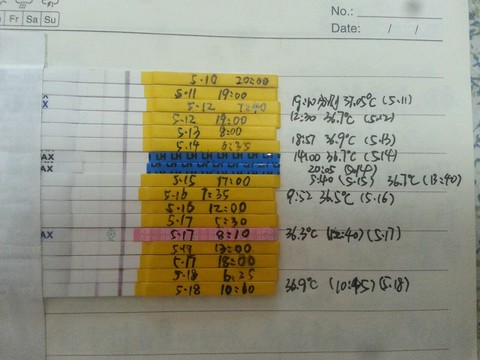 No.:
Date: / /
Fr Sa Su
5.10 20:00
5.11 19:00
5.12 7:40
5.12 19:00
5.13 8:00
5.14 6:35
AX
AX
LH LH LH LH LH
5.15 17:00
5.16 7:35
5.16 12:00
5.17 5:30
AX
5.17 8:10
5.17 13:00
5.17 18:00
5.18 6:25
5.18 10:10
37.05°C (5.11)
12:30 36.7°C (5.12)
18:57 36.9°C (5.13)
14:00 36.7°C (5.14)
20:05
5:40 (5.15) 36.7°C (13:40)
9:52 36.5°C (5.16)
36.3°C (12:40) (5.17)
36.9°C (10:45) (5.18)